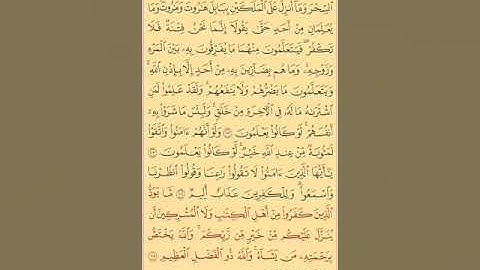 ٱلسِّحْرَ وَمَآ أُنزِلَ عَلَى ٱلْمَلَكَيْنِ بِبَابِلَ هَٰرُوتَ وَمَٰرُوتَ وَمَا
يُعَلِّمَانِ مِنْ أَحَدٍ حَتَّىٰ يَقُولَآ إِنَّمَا نَحْنُ فِتْنَةٌ فَلَا
تَكْفُرْ ۖ فَيَتَعَلَّمُونَ مِنْهُمَا مَا يُفَرِّقُونَ بِهِۦ بَيْنَ ٱلْمَرْءِ
وَزَوْجِهِۦ ۚ وَمَا هُم بِضَآرِّينَ بِهِۦ مِنْ أَحَدٍ إِلَّا بِإِذْنِ ٱللَّهِ ۚ
وَيَتَعَلَّمُونَ مَا يَضُرُّهُمْ وَلَا يَنفَعُهُمْ ۚ وَلَقَدْ عَلِمُوا۟ لَمَنِ
ٱشْتَرَىٰهُ مَا لَهُۥ فِى ٱلْءَاخِرَةِ مِنْ خَلَٰقٍ ۚ وَلَبِئْسَ مَا شَرَوْا۟ بِهِۦٓ
أَنفُسَهُمْ ۚ لَوْ كَانُوا۟ يَعْلَمُونَ ١٠٢ وَلَوْ أَنَّهُمْ ءَامَنُوا۟ وَٱتَّقَوْا۟
لَمَثُوبَةٌ مِّنْ عِندِ ٱللَّهِ خَيْرٌ ۖ لَّوْ كَانُوا۟ يَعْلَمُونَ ١٠٣
يَٰٓأَيُّهَا ٱلَّذِينَ ءَامَنُوا۟ لَا تَقُولُوا۟ رَٰعِنَا وَقُولُوا۟ ٱنظُرْنَا
وَٱسْمَعُوا۟ ۗ وَلِلْكَٰفِرِينَ عَذَابٌ أَلِيمٌ ١٠٤ مَّا يَوَدُّ
ٱلَّذِينَ كَفَرُوا۟ مِنْ أَهْلِ ٱلْكِتَٰبِ وَلَا ٱلْمُشْرِكِينَ أَن
يُنَزَّلَ عَلَيْكُم مِّنْ خَيْرٍ مِّن رَّبِّكُمْ ۗ وَٱللَّهُ يَخْتَصُّ
بِرَحْمَتِهِۦ مَن يَشَآءُ ۚ وَٱللَّهُ ذُو ٱلْفَضْلِ ٱلْعَظِيمِ ١٠٥